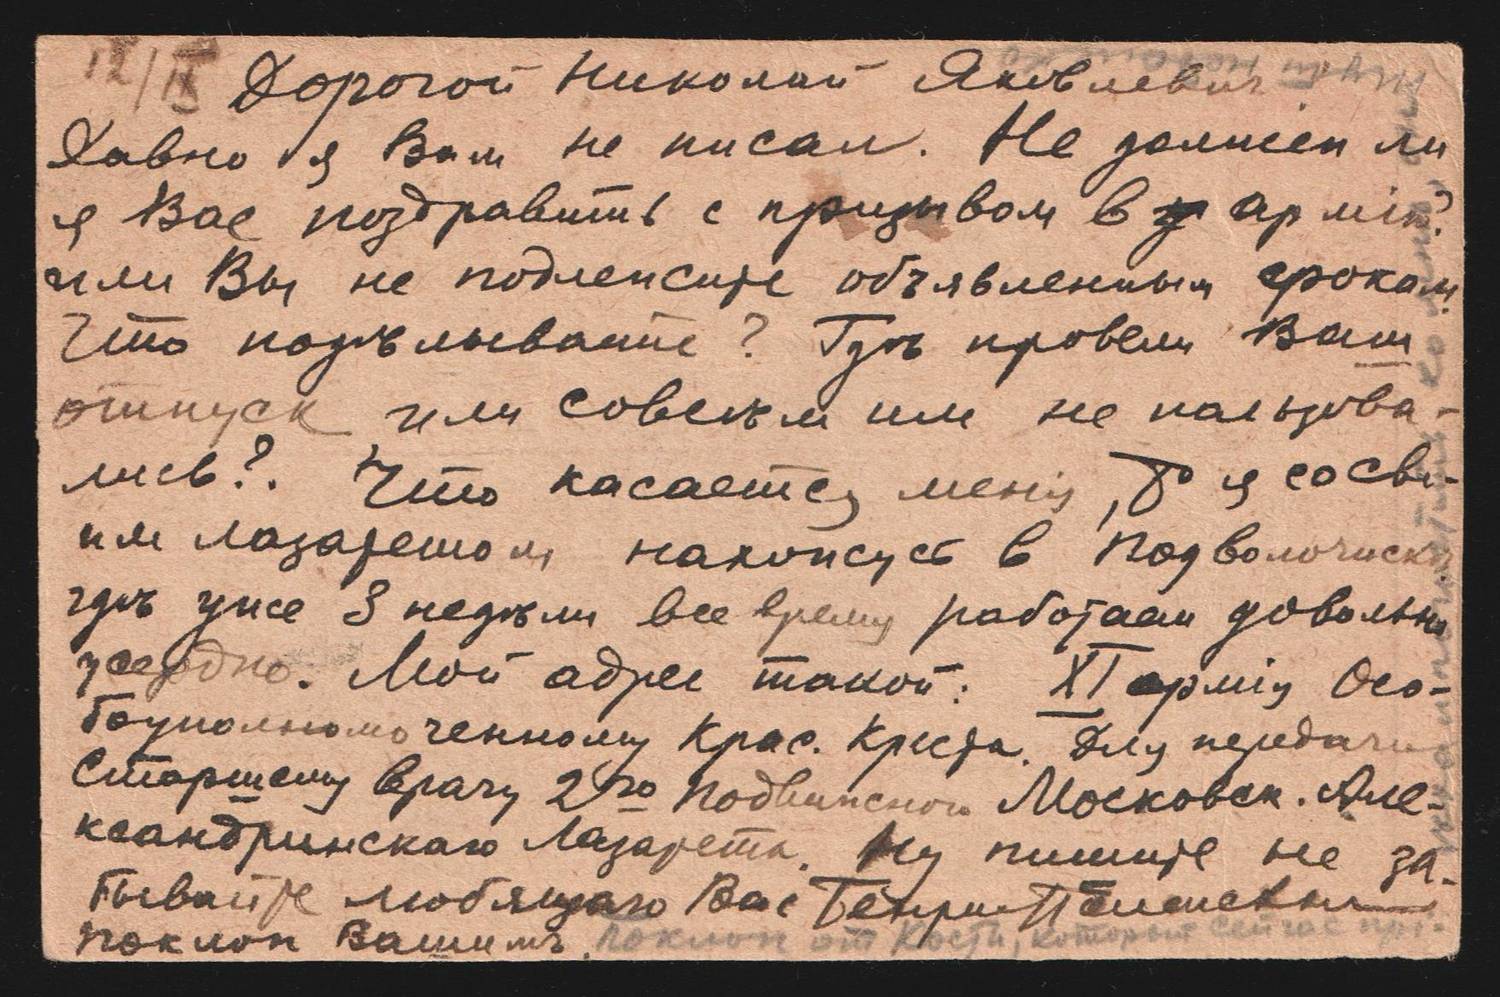 12/IX Дорогой Николай Яковлевич
Давно я Вам не писал. Не должен ли
я Вас поздравить с призывом в армію?
или Вы не подлежите объявленным срокам
Что подѣлываете? Гдѣ провели Ваш
отпуск или совсѣм им не пользова-
лись?. Что касается меня, то я со сво-
им лазаретом нахожусь в Подволочиске
гдѣ уже 3 недѣли все время работаем довольно
усердно. Мой адрес такой: XI армія Осо-
боуполномоченному Крас. Креста. Для передачи
Старшему врачу 2го Подвижного Московск. Але-
ксандринскаго Лазарета. Ну пишите не за-
бывайте любящаго Вас Генри
Поклон Вашимъ. Поклон от Кости, который сейчас прі-